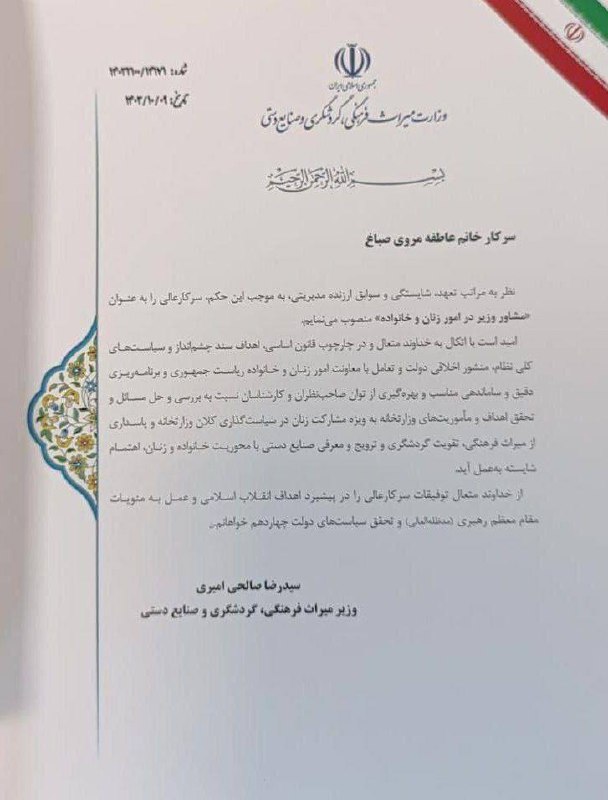 جمهوری اسلامی ایران
وزارت میراث فرهنگی، گردشگری و صنایع دستی
شماره: ۱۴۰۳۲۱۰۰/۱۳۱۷۹
تاریخ: ۱۴۰۳/۱۰/۰۹
بسم الله الرحمن الرحیم
سرکار خانم عاطفه مروی صباغ
نظر به مراتب تعهد، شایستگی و سوابق ارزنده مدیریتی، به موجب این حکم، سرکارعالی را به عنوان
«مشاور وزیر در امور زنان و خانواده» منصوب می‌نمایم.
امید است با اتکال به خداوند متعال و در چارچوب قانون اساسی، اهداف سند چشم‌انداز و سیاست‌های
کلی نظام، منشور اخلاقی دولت و تعامل با معاونت امور زنان و خانواده ریاست جمهوری و برنامه‌ریزی
دقیق و ساماندهی مناسب و بهره‌گیری از توان صاحب‌نظران و کارشناسان نسبت به بررسی و حل مسائل و
تحقق اهداف و مأموریت‌های وزارتخانه به ویژه مشارکت زنان در سیاست‌گذاری کلان وزارتخانه و پاسداری
از میراث فرهنگی، تقویت گردشگری و ترویج و معرفی صنایع دستی با محوریت خانواده و زنان، اهتمام
شایسته به‌عمل آید.
از خداوند متعال توفیقات سرکارعالی را در پیشبرد اهداف انقلاب اسلامی و عمل به منویات
مقام معظم رهبری (مدظله‌العالی) و تحقق سیاست‌های دولت چهاردهم خواهانم.
سیدرضا صالحی امیری
وزیر میراث فرهنگی، گردشگری و صنایع دستی